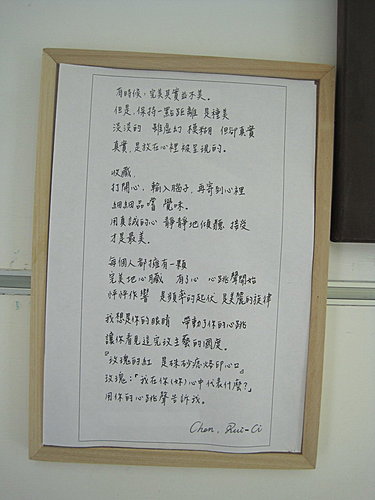 有時候，完美其實並不美。
但是，保持一點距離 是種美
淡淡的 雖虛幻 模糊 但卻真實
真實，是放在心裡被呈現的。
收藏
打開心，輸入腦子，再寄到心裡
細細品嚐 覺味。
用真誠的心 靜靜地傾聽 接受
才是最美。
每個人都擁有一顆
完美地心臟 有了心 心跳聲開始
怦怦作響 是頻率的起伏 是美麗的旋律
我想是你的眼睛 帶動了你的心跳
讓你看見這完玫主藝的國度。
『玫瑰的紅 是硃砂痣烙印心口』
玫瑰：「我在你(妳)心中代表什麼？」
用你的心跳聲告訴我。
Chen, Rui-Ci